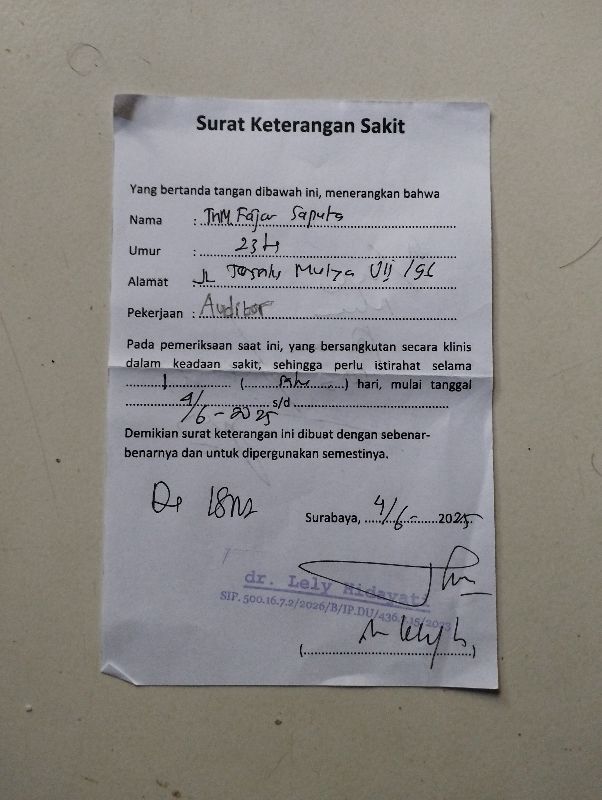 Surat Keterangan Sakit
Yang bertanda tangan dibawah ini, menerangkan bahwa
Nama : Fajar Saputo
Umur : 23
Alamat : JL Mulya VII /
Pekerjaan : Auditor
Pada pemeriksaan saat ini, yang bersangkutan secara klinis
dalam keadaan sakit, sehingga perlu istirahat selama
1 ( satu ) hari, mulai tanggal
4/6 - 2025 s/d
Demikian surat keterangan ini dibuat dengan sebenar-
benarnya dan untuk dipergunakan semestinya.
Surabaya, 4/6 - 2025
dr. Lely Hidayati
SIP. 500.16.7.2/2026/B/IP.DU/436.